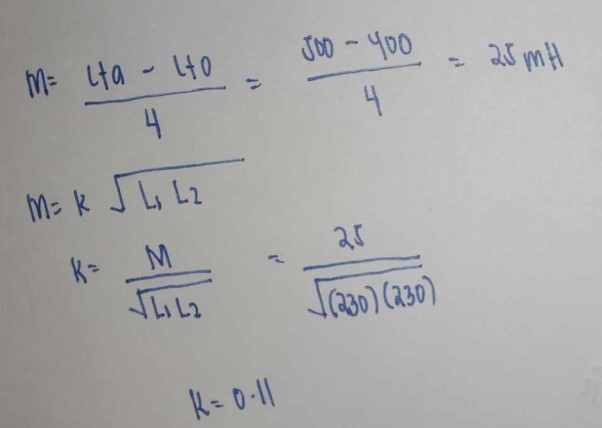 M= Lta - Lto / 4 = 500 - 400 / 4 = 25 mH
M= K √L1 L2
K= M / √L1 L2 = 25 / √(230)(230)
K= 0.11